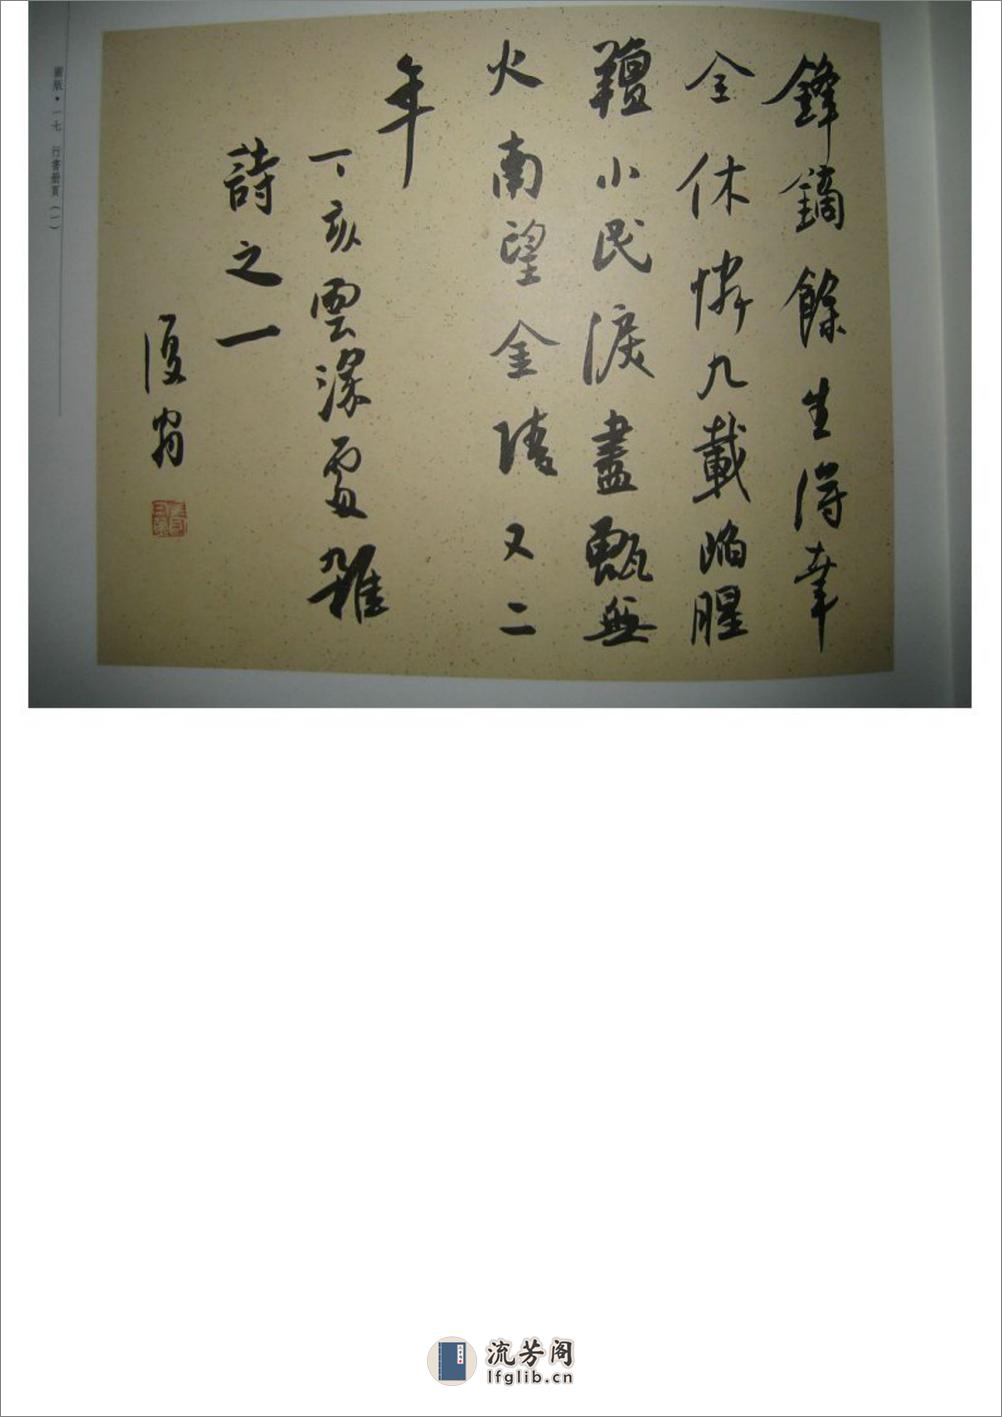 鋒鏑餘生得幸
全休憐九載陷腥
羶小民淚盡甑無
火南望金陵又二
年
丁亥雲深處雜
詩之一
復翁
圖版·一七 行書册頁（一）
流芳阁
lfglib.cn